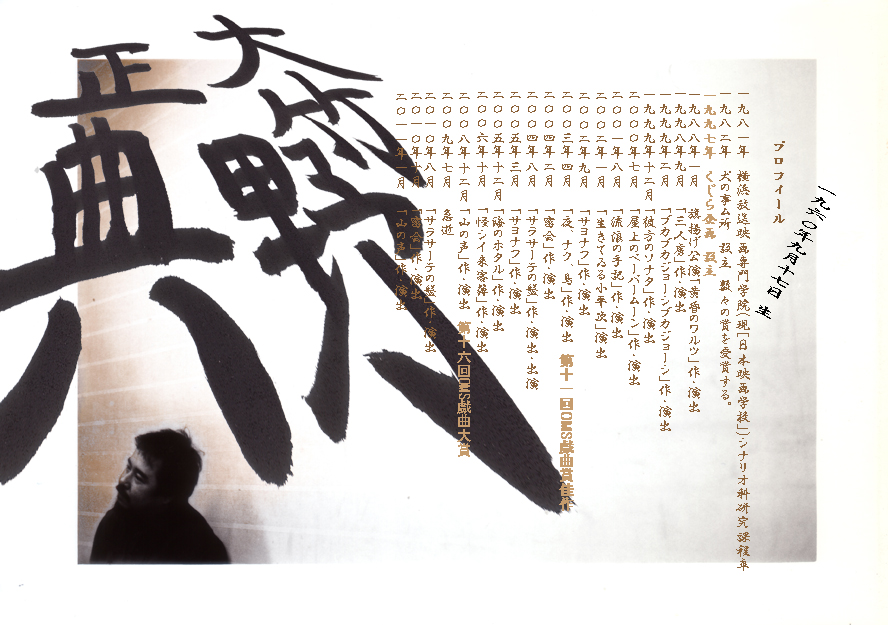 大竹野
正典
一九六〇年九月十七日 生
プロフィール
一九八一年 横浜放送映画専門学院(現「日本映画学校」)シナリオ科研究課程卒
一九八二年 犬の事ム所 設立 数々の賞を受賞する。
一九九七年 くじら企画 設立
一九八八年一月 旗揚げ公演「黄昏のワルツ」作・演出
一九九八年九月「三人」作・演出
一九九九年二月「ブカブカジョーシブカジョーシ」作・演出
一九九九年十二月「彼方のソナタ」作・演出
二〇〇〇年七月「屋上のペーパームーン」作・演出
二〇〇一年八月「流浪の手記」作・演出
二〇〇二年一月「生きてゐる小平次」演出
二〇〇二年九月「サヨナフ」作・演出
二〇〇三年四月「夜、ナク、鳥」作・演出 第十一回OMS戯曲賞佳作
二〇〇四年二月「密会」作・演出
二〇〇四年八月「サラサーテの盤」作・演出・出演
二〇〇五年三月「サヨナフ」作・演出
二〇〇五年十二月「海のホタル」作・演出
二〇〇六年十月「怪シイ来客簿」作・演出
二〇〇八年十二月「山の声」作・演出 第十六回OMS戯曲大賞
二〇〇九年七月 急逝
二〇一〇年八月「サラサーテの盤」作・演出
二〇一〇年十月「密会」作・演出
二〇一一年一月「山の声」作・演出